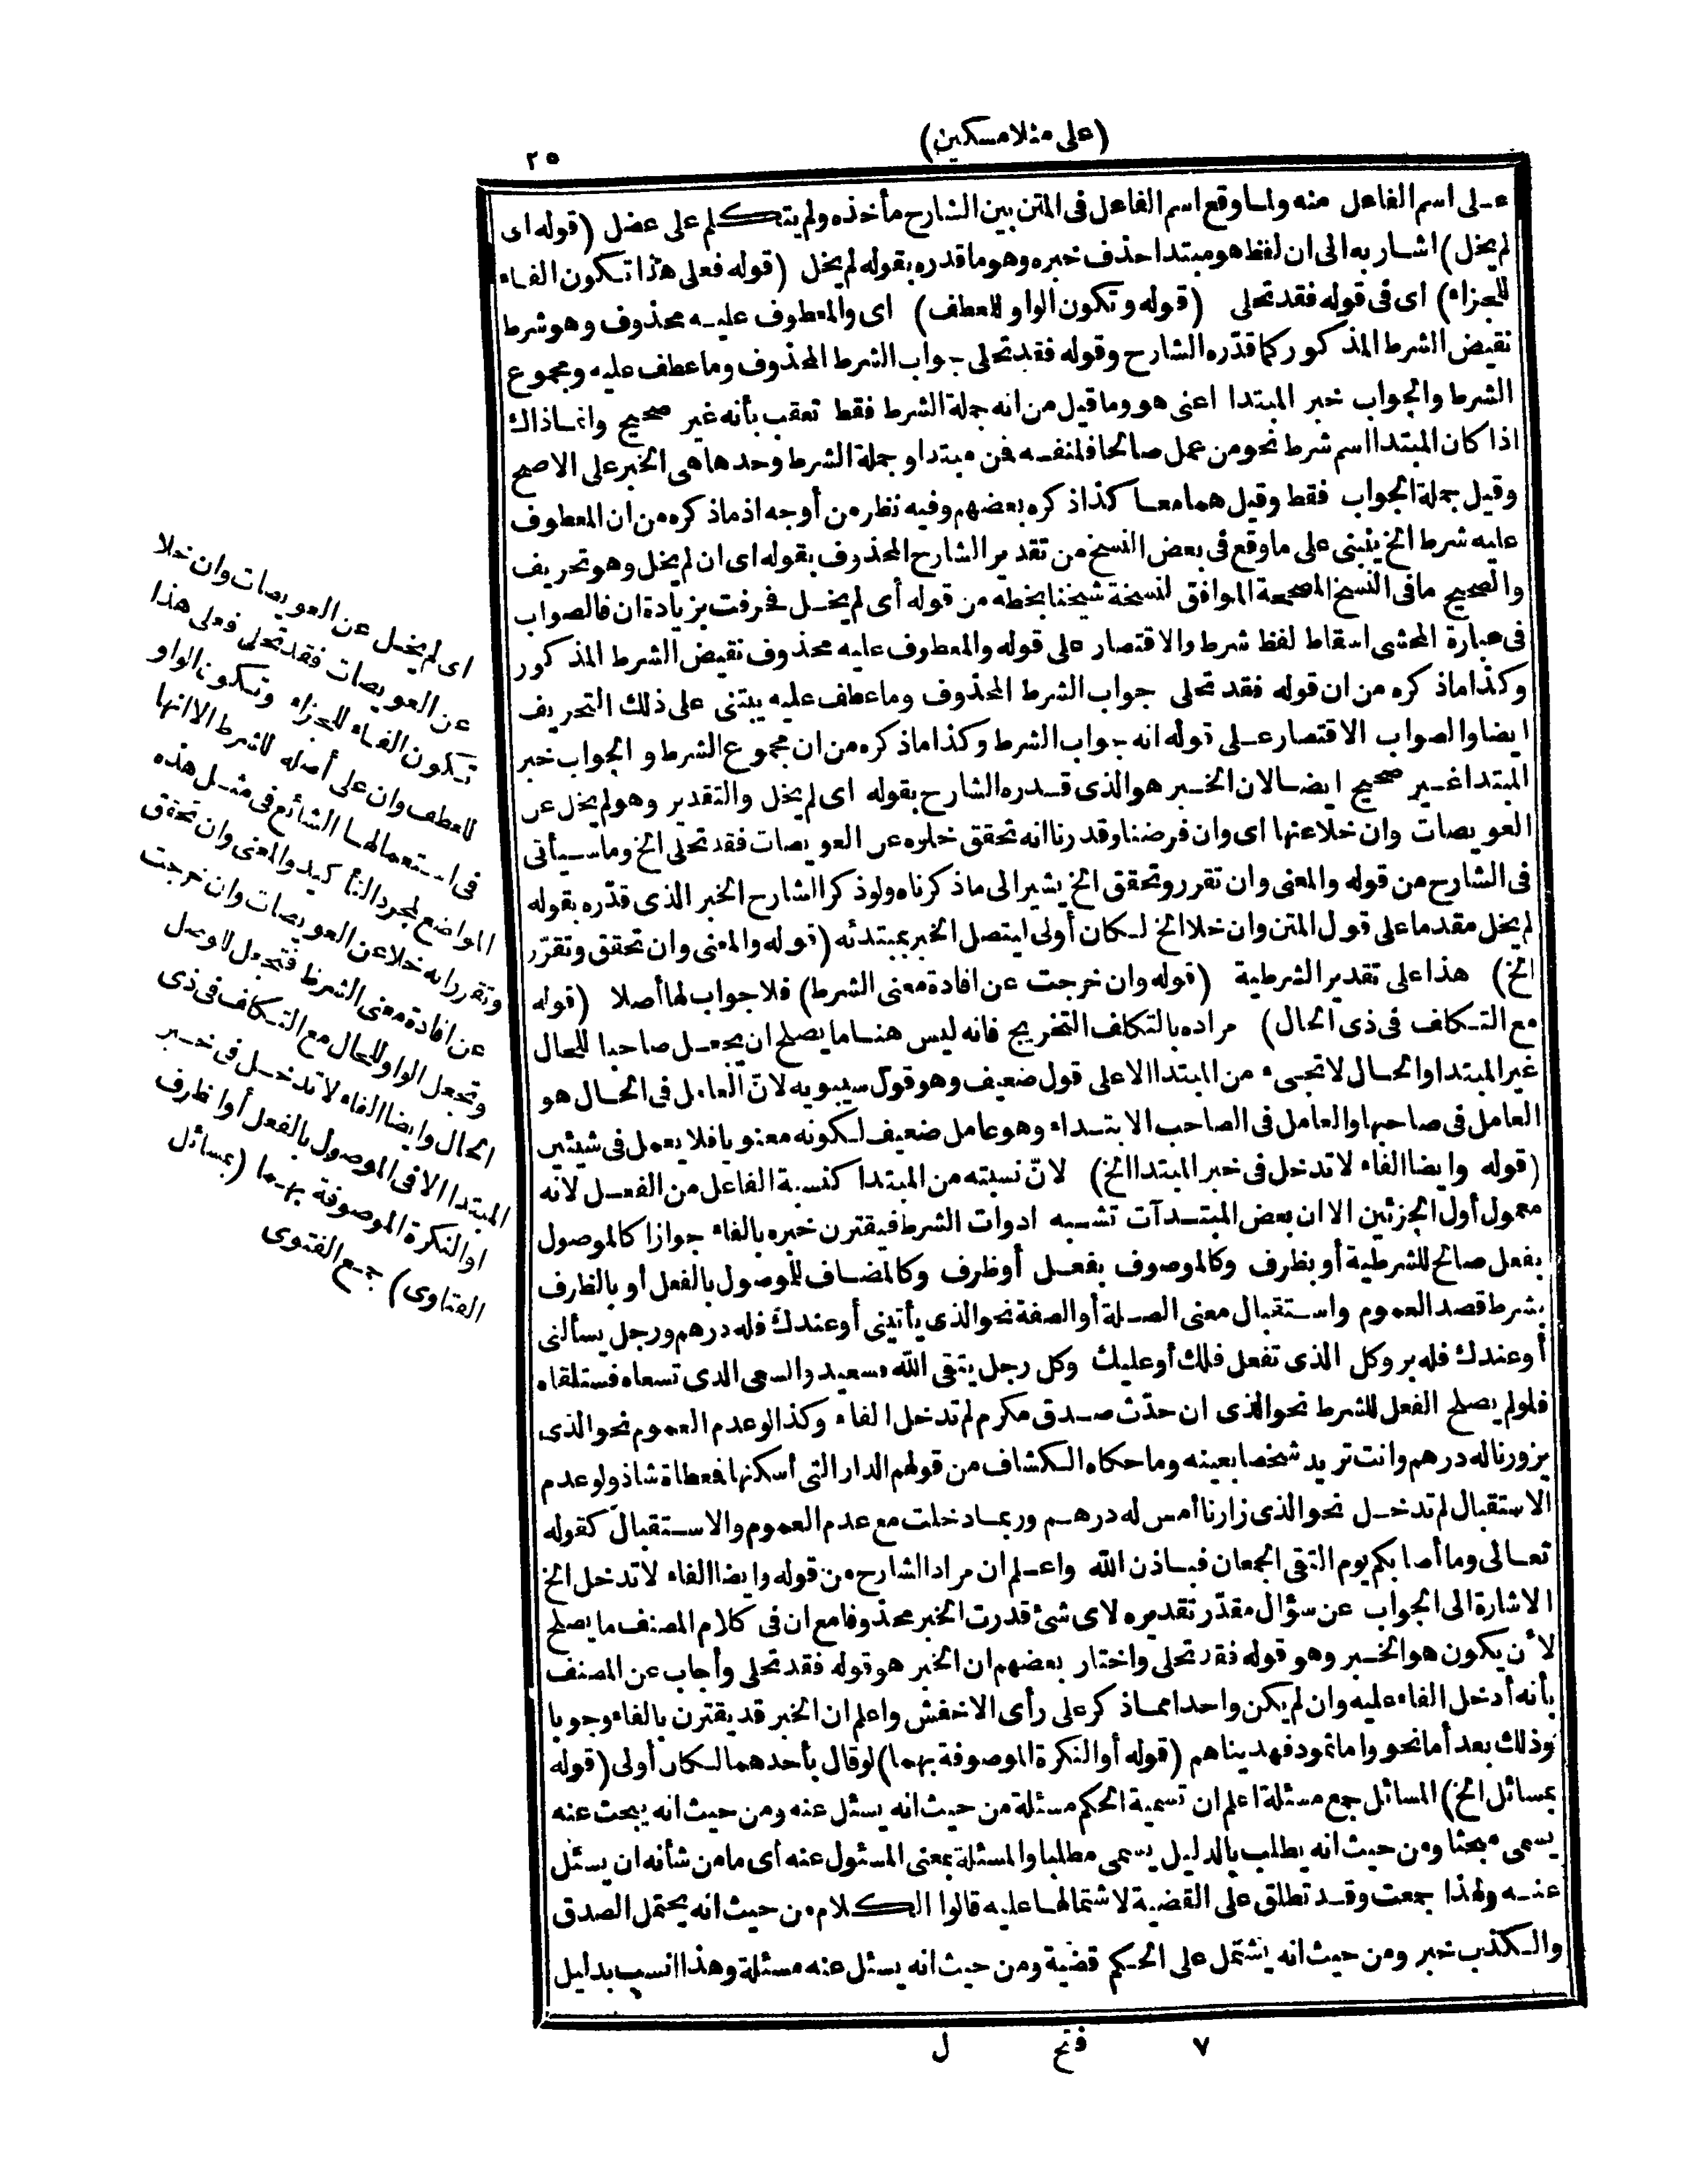 (على منلا مسكين)
٢٥
على اسم الفاعل منه ولما وقع اسم الفاعل فى المتن بين الشارح مأخذه ولم يتكلم على عضل (قوله اى
لم يخل) اشار به الى ان لفظ هو مبتدا حذف خبره وهو ما قدره بقوله لم يخل (قوله فعلى هذا تكون الفاء
للجزاء) اى فى قوله فقد تحلى (قوله وتكون الواو للعطف) اى والمعطوف عليه محذوف وهو شرط
نقيض الشرط المذكور كما قدّره الشارح وقوله فقد تحلى جواب الشرط المحذوف وما عطف عليه ومجموع
الشرط والجواب خبر المبتدا اعنى هو وما قيل من انه جملة الشرط فقط تعقب بأنه غير صحيح وانما ذاك
اذا كان المبتدا اسم شرط نحو من عمل صالحا فلنفسه فمن مبتدا وجملة الشرط وحدها هى الخبر على الاصح
وقيل جملة الجواب فقط وقيل هما معا كذا ذكره بعضهم وفيه نظر من أوجه اذ ما ذكره من ان المعطوف
عليه شرط الخ ينبنى على ما وقع فى بعض النسخ من تقدير الشارح المحذوف بقوله اى ان لم يخل وهو تحريف
والصحيح ما فى النسخ المصححة الموافق لنسخة شيخنا بخطه من قوله أى لم يخل فحرفت بزيادة ان فالصواب
فى عبارة المحشى اسقاط لفظ شرط والاقتصار على قوله والمعطوف عليه محذوف نقيض الشرط المذكور
وكذا ما ذكره من ان قوله فقد تحلى جواب الشرط المحذوف وما عطف عليه يبتنى على ذلك التحريف
ايضا والصواب الاقتصار على قوله انه جواب الشرط وكذا ما ذكره من ان مجموع الشرط والجواب خبر
المبتدا غير صحيح ايضا لان الخبر هو الذى قدره الشارح بقوله اى لم يخل والتقدير وهو لم يخل عن
العويصات وان خلا عنها اى وان فرضنا وقدرنا انه تحقق خلوه عن العويصات فقد تحلى الخ وما سيأتى
فى الشارح من قوله والمعنى وان تقرر وتحقق الخ يشير الى ما ذكرناه ولو ذكر الشارح الخبر الذى قدّره بقوله
لم يخل مقدما على قول المتن وان خلا الخ لكان أولى ليتصل الخبر بمبتدئه (قوله والمعنى وان تحقق وتقرّر
الخ) هذا على تقدير الشرطية (قوله وان خرجت عن افادة معنى الشرط) فلا جواب لها أصلا (قوله
مع التكلف فى ذى الحال) مراده بالتكلف التخريج فانه ليس هنا ما يصلح ان يجعل صاحبا للحال
غير المبتدا والحال لا تجىء من المبتدا الا على قول ضعيف وهو قول سيبويه لانّ العامل فى الحال هو
العامل فى صاحبها والعامل فى الصاحب الابتداء وهو عامل ضعيف لكونه معنويا فلا يعمل فى شيئين
(قوله وايضا الفاء لا تدخل فى خبر المبتدا الخ) لانّ نسبته من المبتدا كنسبة الفاعل من الفعل لانه
معمول أول الجزئين الا ان بعض المبتدآت تشبه ادوات الشرط فيقترن خبره بالفاء جوازا كالموصول
بفعل صالح للشرطية أو بظرف وكالموصوف بفعل أو ظرف وكالمضاف للموصول بالفعل أو بالظرف
بشرط قصد العموم واستقبال معنى الصلة أو الصفة نحو الذى يأتينى أو عندك فله درهم ورجل يسألنى
أو عندك فله بر وكل الذى تفعل فلك أو عليك وكل رجل يتقى الله فسعيد والسعى الذى تسعاه فستلقاه
فلو لم يصلح الفعل للشرط نحو الذى ان حدّث صدق مكرم لم تدخل الفاء وكذا لو عدم العموم نحو الذى
يزورنا له درهم وانت تريد شخصا بعينه وما حكاه الكشاف من قولهم الدار التى أسكنها فمعطاة شاذ ولو عدم
الاستقبال لم تدخل نحو الذى زارنا أمس له درهم وربما دخلت مع عدم العموم والاستقبال كقوله
تعالى وما أصابكم يوم التقى الجمعان فباذن الله واعلم ان مراد الشارح من قوله وايضا الفاء لا تدخل الخ
الاشارة الى الجواب عن سؤال مقدّر تقديره لاى شئ قدرت الخبر محذوفا مع ان فى كلام المصنف ما يصلح
لأن يكون هو الخبر وهو قوله فقد تحلى واختار بعضهم ان الخبر هو قوله فقد تحلى وأجاب عن المصنف
بأنه أدخل الفاء عليه وان لم يكن واحدا مما ذكر على رأى الاخفش واعلم ان الخبر قد يقترن بالفاء وجوبا
وذلك بعد أما نحو واما ثمود فهديناهم (قوله أو النكرة الموصوفة بهما) لو قال بأحدهما لكان أولى (قوله
بمسائل الخ) المسائل جمع مسئلة اعلم ان تسمية الحكم مسئلة من حيث انه يسئل عنه ومن حيث انه يبحث عنه
يسمى مبحثا ومن حيث انه يطلب بالدليل يسمى مطلبا والمسئلة بمعنى المسئول عنه أى ما من شأنه ان يسئل
عنه ولهذا جمعت وقد تطلق على القضية لاشتمالها عليه قالوا الكلام من حيث انه يحتمل الصدق
والكذب خبر ومن حيث انه يشتمل على الحكم قضية ومن حيث انه يسئل عنه مسئلة وهذا انسب بدليل
اى لم يخل عن العويصات وان خلا
عن العويصات فقد تحلى فعلى هذا
تكون الفاء للجزاء وتكون الواو
للعطف وان على أصله للشرط الا انها
فى استعمالها الشائع فى مثل هذه
المواضع لمجرد التأكيد والمعنى وان تحقق
وتقرر انه خلا عن العويصات وان خرجت
عن افادة معنى الشرط فتجعل للوصل
وتجعل الواو للحال مع التكلف فى ذى
الحال وايضا الفاء لا تدخل فى خبر
المبتدا الا فى الموصول بالفعل أو الظرف
او النكرة الموصوفة بهما (بمسائل
الفتاوى) جمع الفتوى
٧ فتح ل